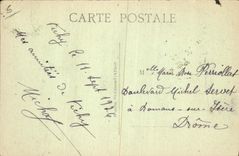 CARTE POSTALE
Vichy le 11 Sept 1926
Mes amitiés de Vichy
Michel
Boulevard Michel Servet
à Romans-sur-Isère
Drôme